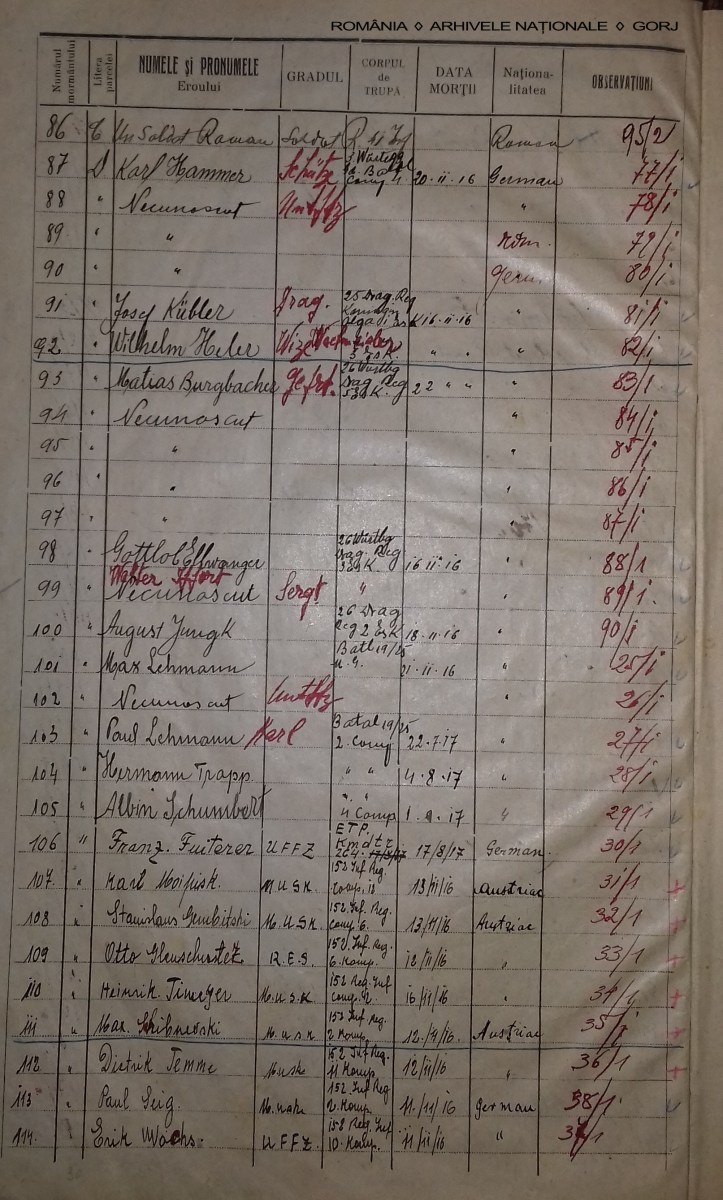 ROMÂNIA ◊ ARHIVELE NAȚIONALE ◊ GORJ
Numărul mormântului Litera parcelei NUMELE și PRONUMELE Eroului GRADUL CORPUL de TRUPĂ DATA MORȚII Naționalitatea OBSERVAȚIUNI
86 Un Soldat Roman Soldat Roman 95/2
87 D Karl Hammer Schütze Comp 4 20·11·16 German 77/i
88 " Necunoscut Untffz " 78/i
89 " " Rom. 79/i
90 " " Germ. 80/i
91 " Josef Kübler Drag. 25 Drag. Reg 16·11·16 " 81/i
92 " Wilhelm Heler 3 Esk. " " " " 82/i
93 " Matias Burgbacher Gefrt. 26 Würtbg Drag Reg 5 Esk. 22 " " " 83/i
94 Necunoscut " 84/i
95 " " " 85/i
96 " " 86/i
97 " " " 87/i
98 " Gottlob Effwanger 26 Würtbg Drag. Reg 3 Esk. 16 11·16 " 88/1
99 " Walter Necunoscut Sergt " 89/1
100 " August Jungk 26 Drag Reg 2 Esk 18·11·16 " 90/i
101 " Max Lehmann Batl 19/25 21·11·16 " 25/i
102 " Necunoscut Untffz " 26/i
103 " Paul Lehmann Karl Batal 19/25 2. Comp 22·7·17 " 27/i
104 " Hermann Trapp. " " 4·8·17 " 28/i
105 " Albin Schumbert " " 4 Comp " 29/1
106 " Franz. Fuiterer UFFZ ETP. Kmdtr 264. 17/8/17 German 30/1
107. " Karl MUSK 152 Inf Reg. Comp. 13/11/16 Austriac 31/1
108 " Stanislaus MUSK. 152. Inf. Reg. Comp 6. 13/11/16 Austriac 32/1
109 " Otto R.E.S. 152. Inf. Reg. 6. Komp. 12/11/16 " 33/1
110 " Heinrik M.U.S.K 152 Reg. Inf Comp. 16/11/16 " 34/1
111 " Max. M.u.s.k 152 Inf Reg. 2 Komp. 12./11/16 Austriac 35/1
112 " Dietrik Temme Musk 152 Inf Reg. 11 Komp. 12/11/16 " 36/1
113 " Paul Seig. 152 Inf Reg 2. Komp. 11./11/16 german 38/1
114. " Erik Wachs. UFFZ. 152 Reg. Inf 10. Komp. 11/11/16 "